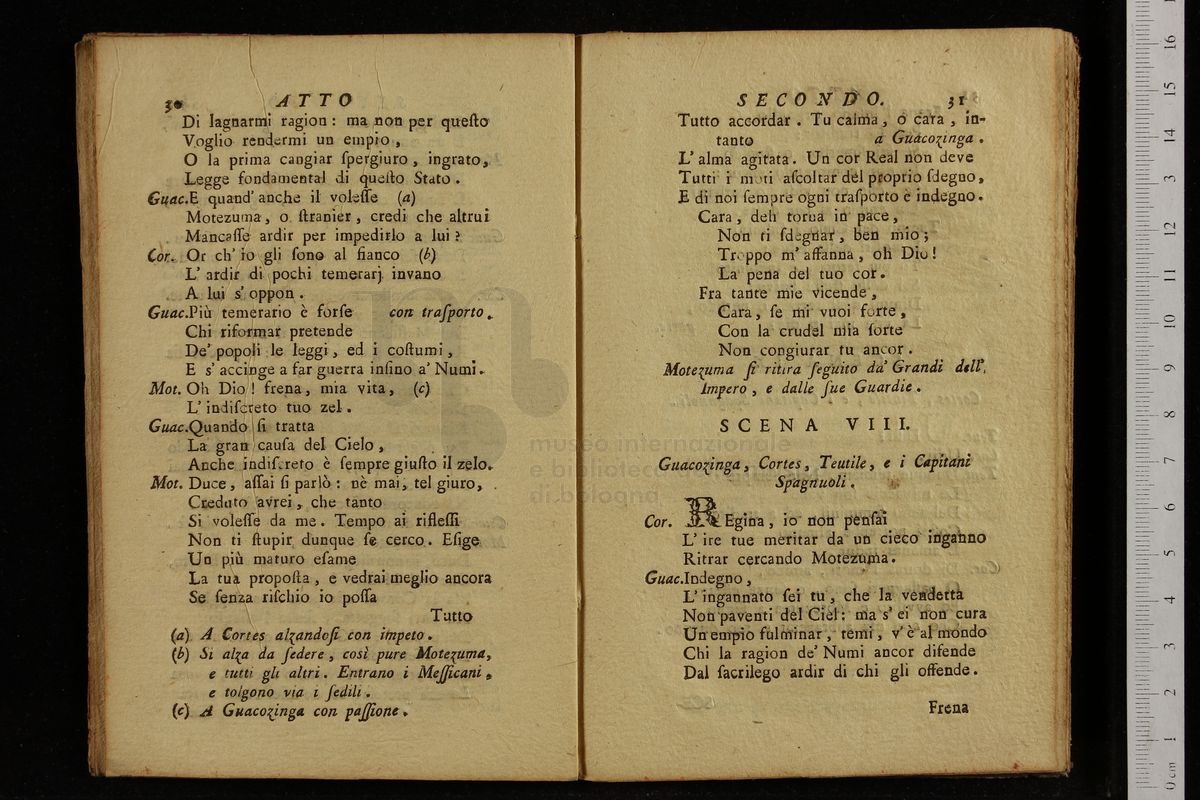 30 ATTO
Di lagnarmi ragion : ma non per queſto
Voglio rendermi un empio ,
O la prima cangiar ſpergiuro , ingrato,
Legge fondamental di queſto Stato .
Guac. E quand' anche il voleſſe (a)
Motezuma , o ſtranier , credi che altrui
Mancaſſe ardir per impedirlo a lui ?
Cor. Or ch' io gli ſono al fianco (b)
L' ardir di pochi temerarj invano
A lui s' oppon .
Guac. Più temerario è forſe con traſporto .
Chi riformar pretende
De' popoli le leggi , ed i coſtumi ,
E s' accinge a far guerra inſino a' Numi .
Mot. Oh Dio ! frena , mia vita , (c)
L' indiſcreto tuo zel .
Guac. Quando ſi tratta
La gran cauſa del Cielo ,
Anche indiſcreto è ſempre giuſto il zelo.
Mot. Duce , aſſai ſi parlò : nè mai , tel giuro,
Creduto avrei , che tanto
Si voleſſe da me . Tempo ai rifleſſi
Non ti ſtupir dunque ſe cerco . Eſige
Un più maturo eſame
La tua propoſta , e vedrai meglio ancora
Se ſenza riſchio io poſſa
Tutto
(a) A Cortes alzandoſi con impeto .
(b) Si alza da ſedere , così pure Motezuma,
e tutti gli altri . Entrano i Meſſicani ,
e tolgono via i ſedili .
(c) A Guacozinga con paſſione .
SECONDO. 31
Tutto accordar . Tu calma , o cara , in-
tanto a Guacozinga .
L' alma agitata . Un cor Real non deve
Tutti i moti aſcoltar del proprio ſdegno,
E di noi ſempre ogni traſporto è indegno.
Cara , deh torna in pace ,
Non ti ſdegnar , ben mio ;
Troppo m' affanna , oh Dio !
La pena del tuo cor .
Fra tante mie vicende ,
Cara , ſe mi vuoi forte ,
Con la crudel mia ſorte
Non congiurar tu ancor .
Motezuma ſi ritira ſeguito da' Grandi dell'
Impero , e dalle ſue Guardie .
SCENA VIII.
Guacozinga , Cortes , Teutile , e i Capitani
Spagnuoli .
Cor. REgina , io non penſai
L' ire tue meritar da un cieco inganno
Ritrar cercando Motezuma .
Guac. Indegno ,
L' ingannato ſei tu , che la vendetta
Non paventi del Ciel : ma s' ei non cura
Un empio fulminar , temi , v' è al mondo
Chi la ragion de' Numi ancor difende
Dal ſacrilego ardir di chi gli offende .
Frena
museo internazionale
e biblioteca
di bologna
0 cm 1 2 3 4 5 6 7 8 9 10 11 12 13 14 15 16